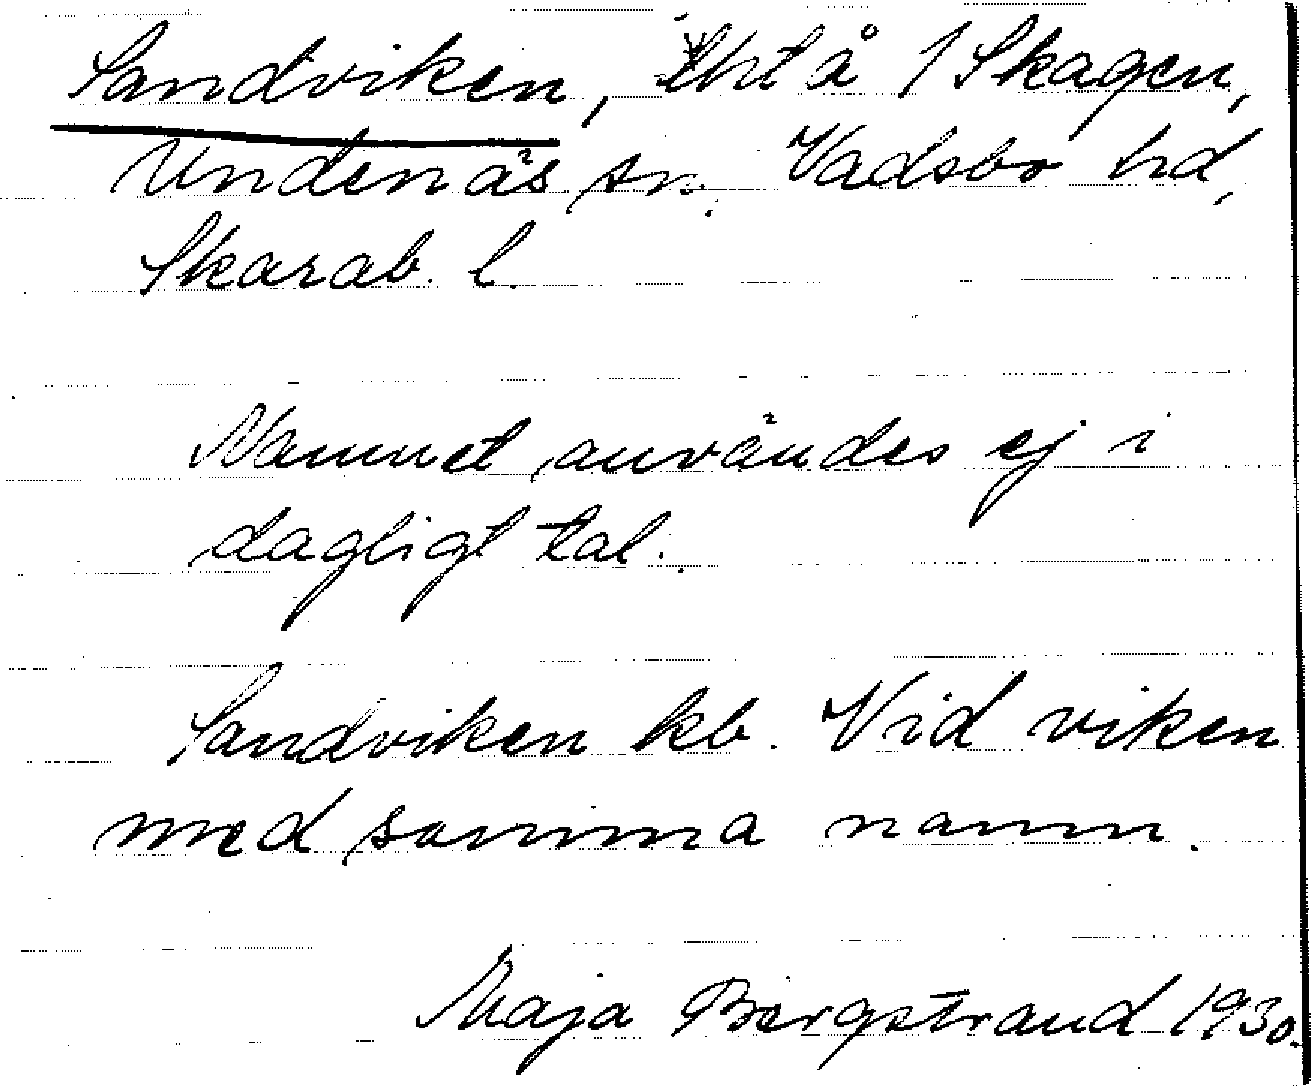 Sandviken, lht å 1 Skagen,
Undenäs sn. Vadsbo hd,
Skarab. l.
Namnet användes ej i
dagligt tal.
Sandviken kb. Vid viken
med samma namn.
Maja Bergstrand 1930.